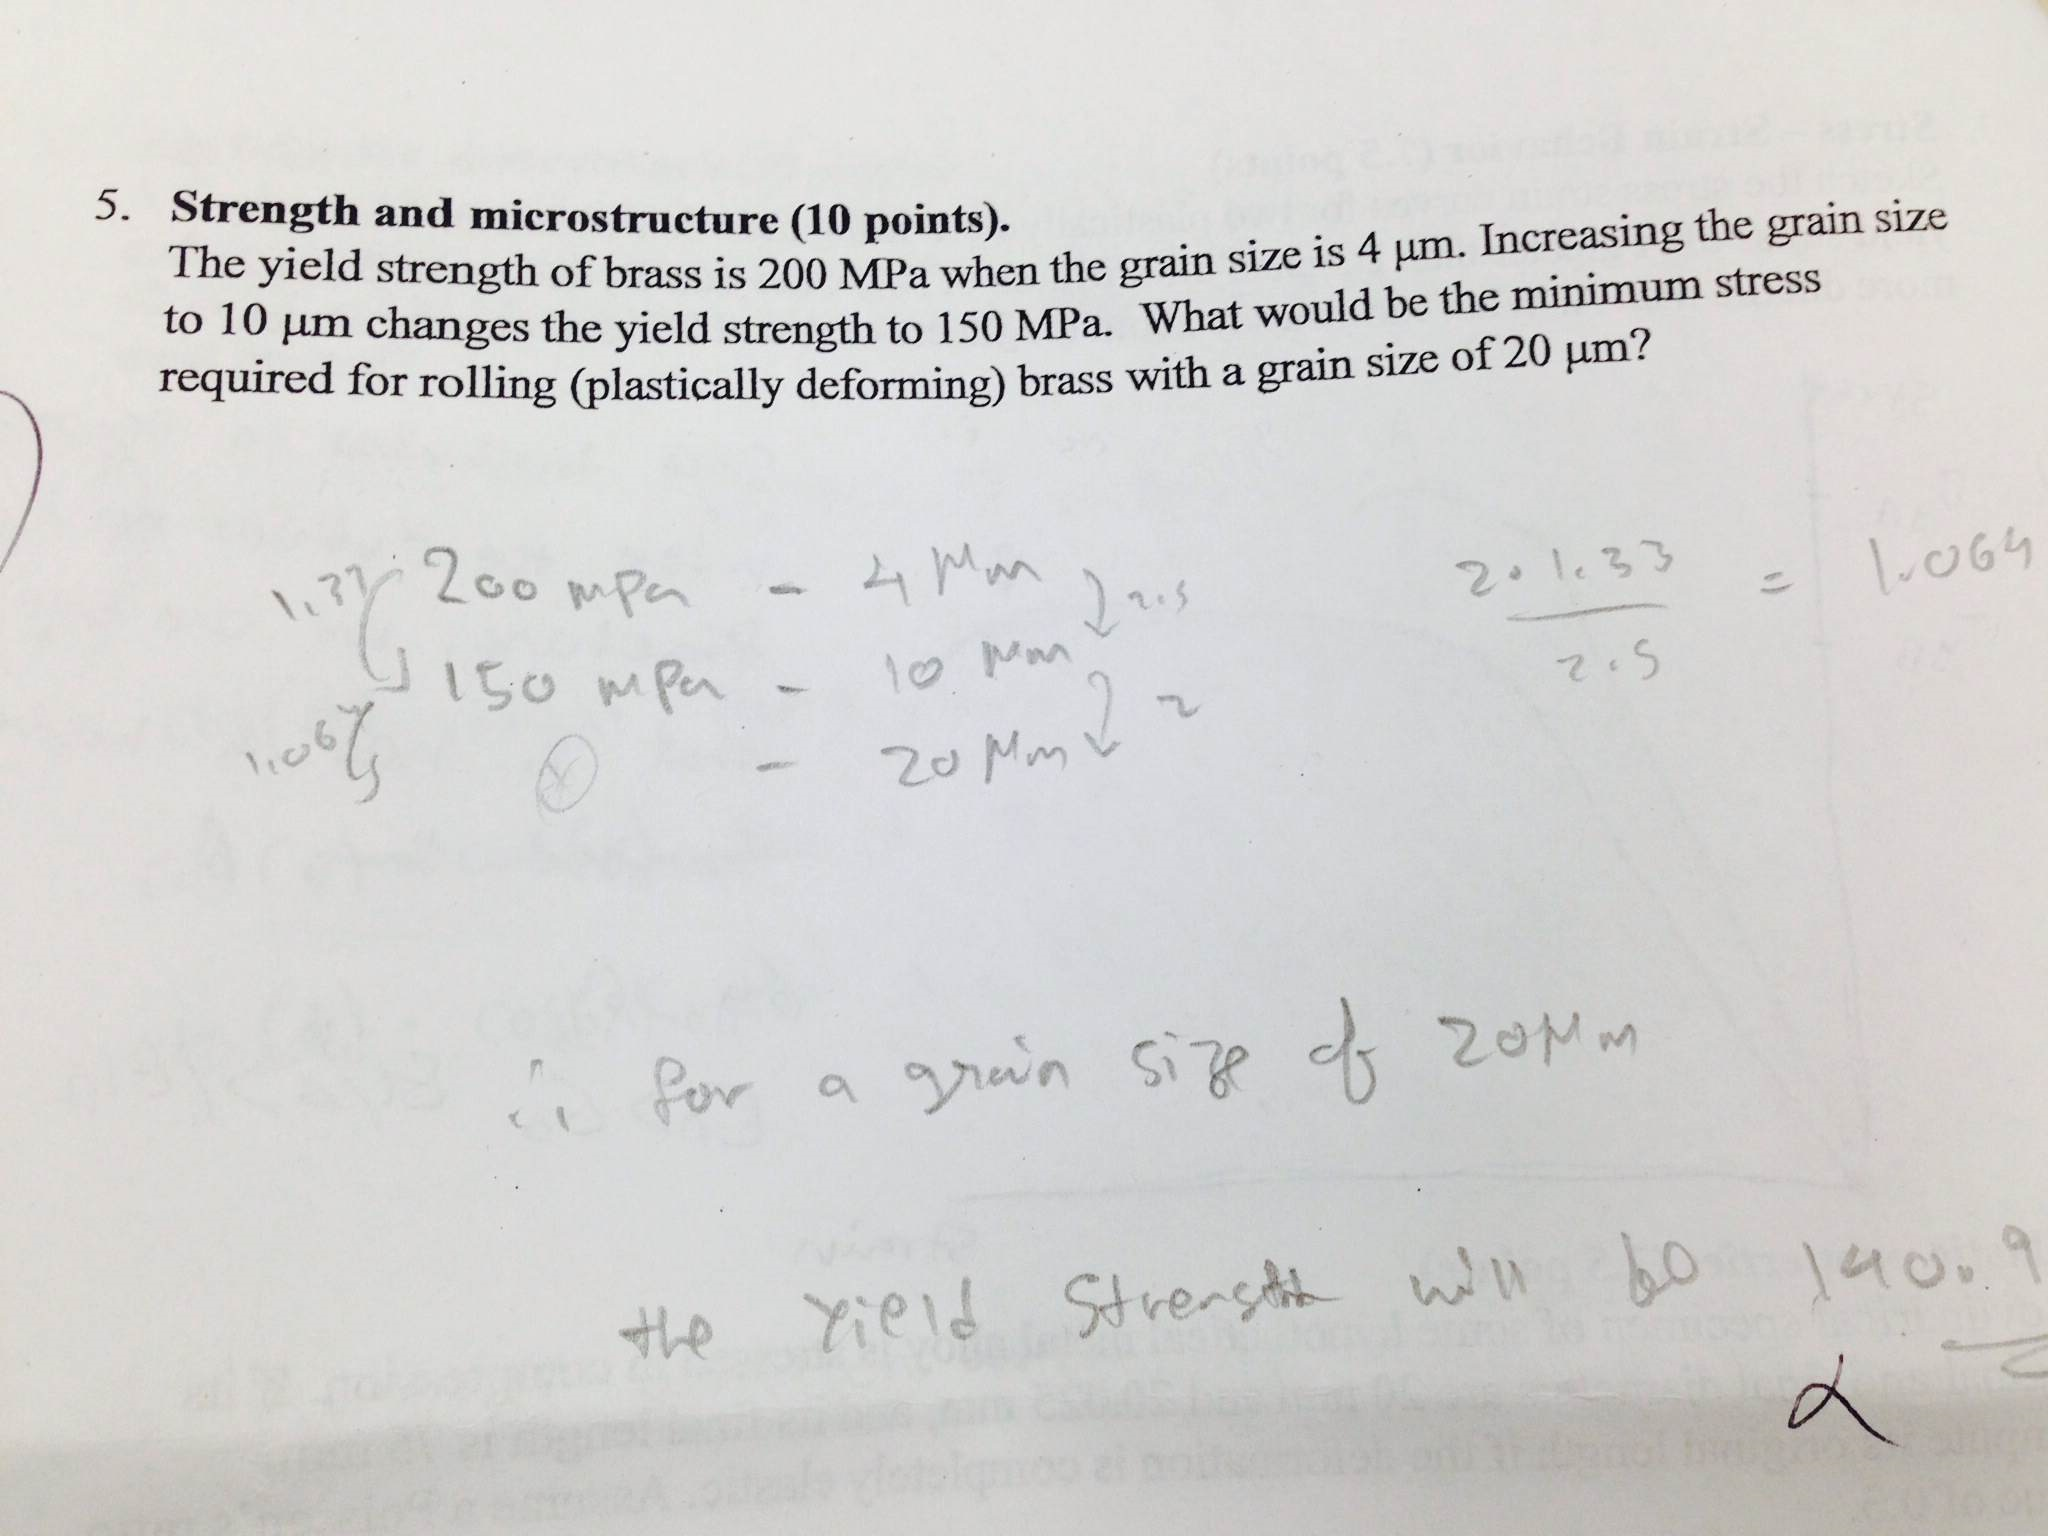 5. Strength and microstructure (10 points).
The yield strength of brass is 200 MPa when the grain size is 4 μm. Increasing the grain size
to 10 μm changes the yield strength to 150 MPa. What would be the minimum stress
required for rolling (plastically deforming) brass with a grain size of 20 μm?
1.33 200 mPa - 4 Mm 2.5
150 mPa - 10 Mm
1.064 - 20 Mm 2
2.1.33 = 1.064
2.5
for a grain size of 20Mm
the Yield Strength will be 140.9